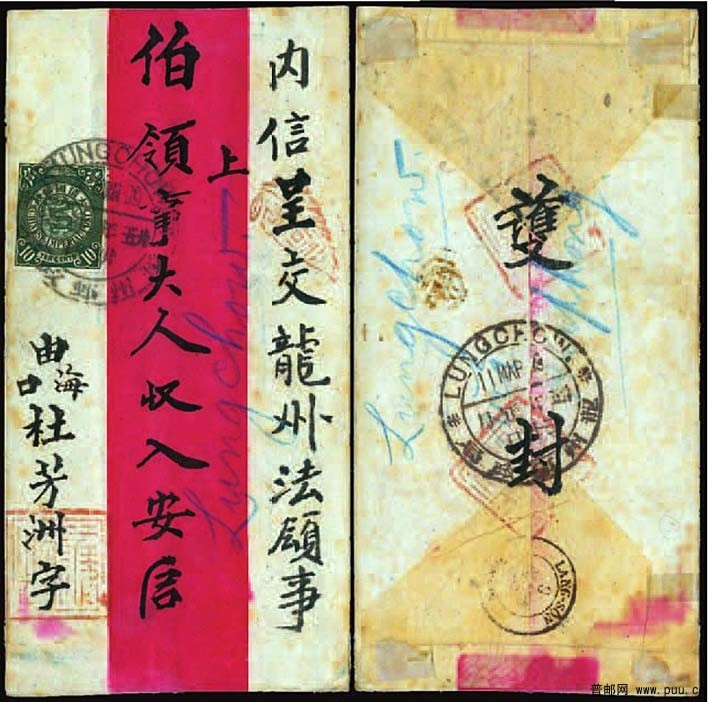 内信呈交龍州法領事
上
伯領事大人收入安启
由海口杜芳洲字
Lungchow
LUNGCHOW
10
10
護封
Lungchow
LUNGCHOW
11 MAR
LANG-SON
普邮网 www.puu.c